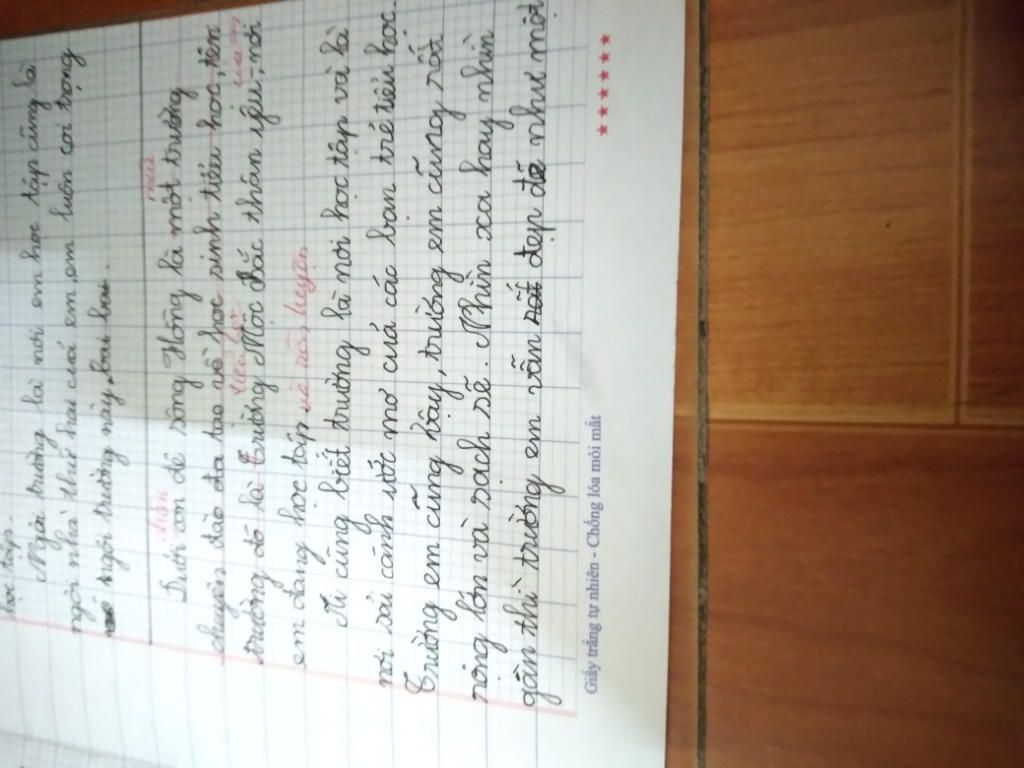 học tập.
Ngôi trường là nơi em học tập cũng là
ngôi nhà thứ hai của em, em luôn coi trọng
ngôi trường này,
chân mái
Dưới con đê sông Hồng là một trường
chuyên đào đa tạo về học sinh tiểu học, tên
tiểu học
trường đó là Trường Mộc Bắc thân yêu, nơi
em đang học tấp. và rèn luyện
Ai cũng biết trường là nơi học tập và là
nơi sải cánh ước mơ cuả các bạn trẻ tiểu học.
Trường em cũng vậy, trường em cũng rất
rộng lớn và sạch sẽ. Nhìn xa hay nhìn
gần thì trường em vẫn rất đẹp đẽ như một
Giấy trắng tự nhiên - Chống lóa mỏi mắt